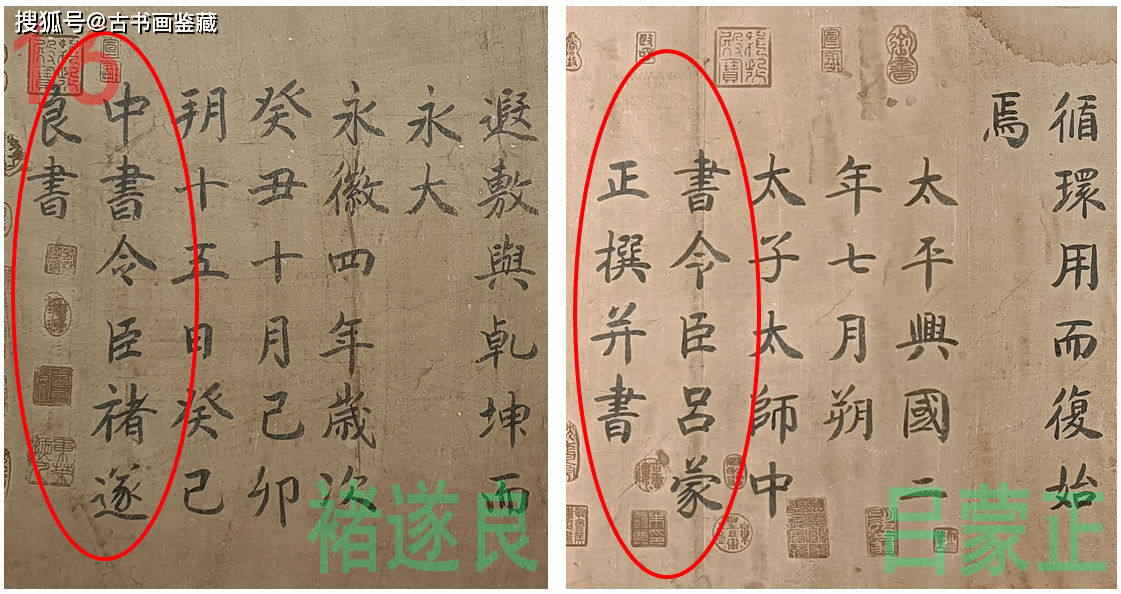 搜狐号@古书画鉴藏
16
遐敷與乹坤而
永大
永徽四年歲次
癸丑十月己卯
朔十五日癸己
中書令臣褚遂
良書
褚遂良
循環用而復始
焉
太平興國二
年七月朔
太子太師中
書令臣呂蒙
正撰并書
御書
吕蒙正